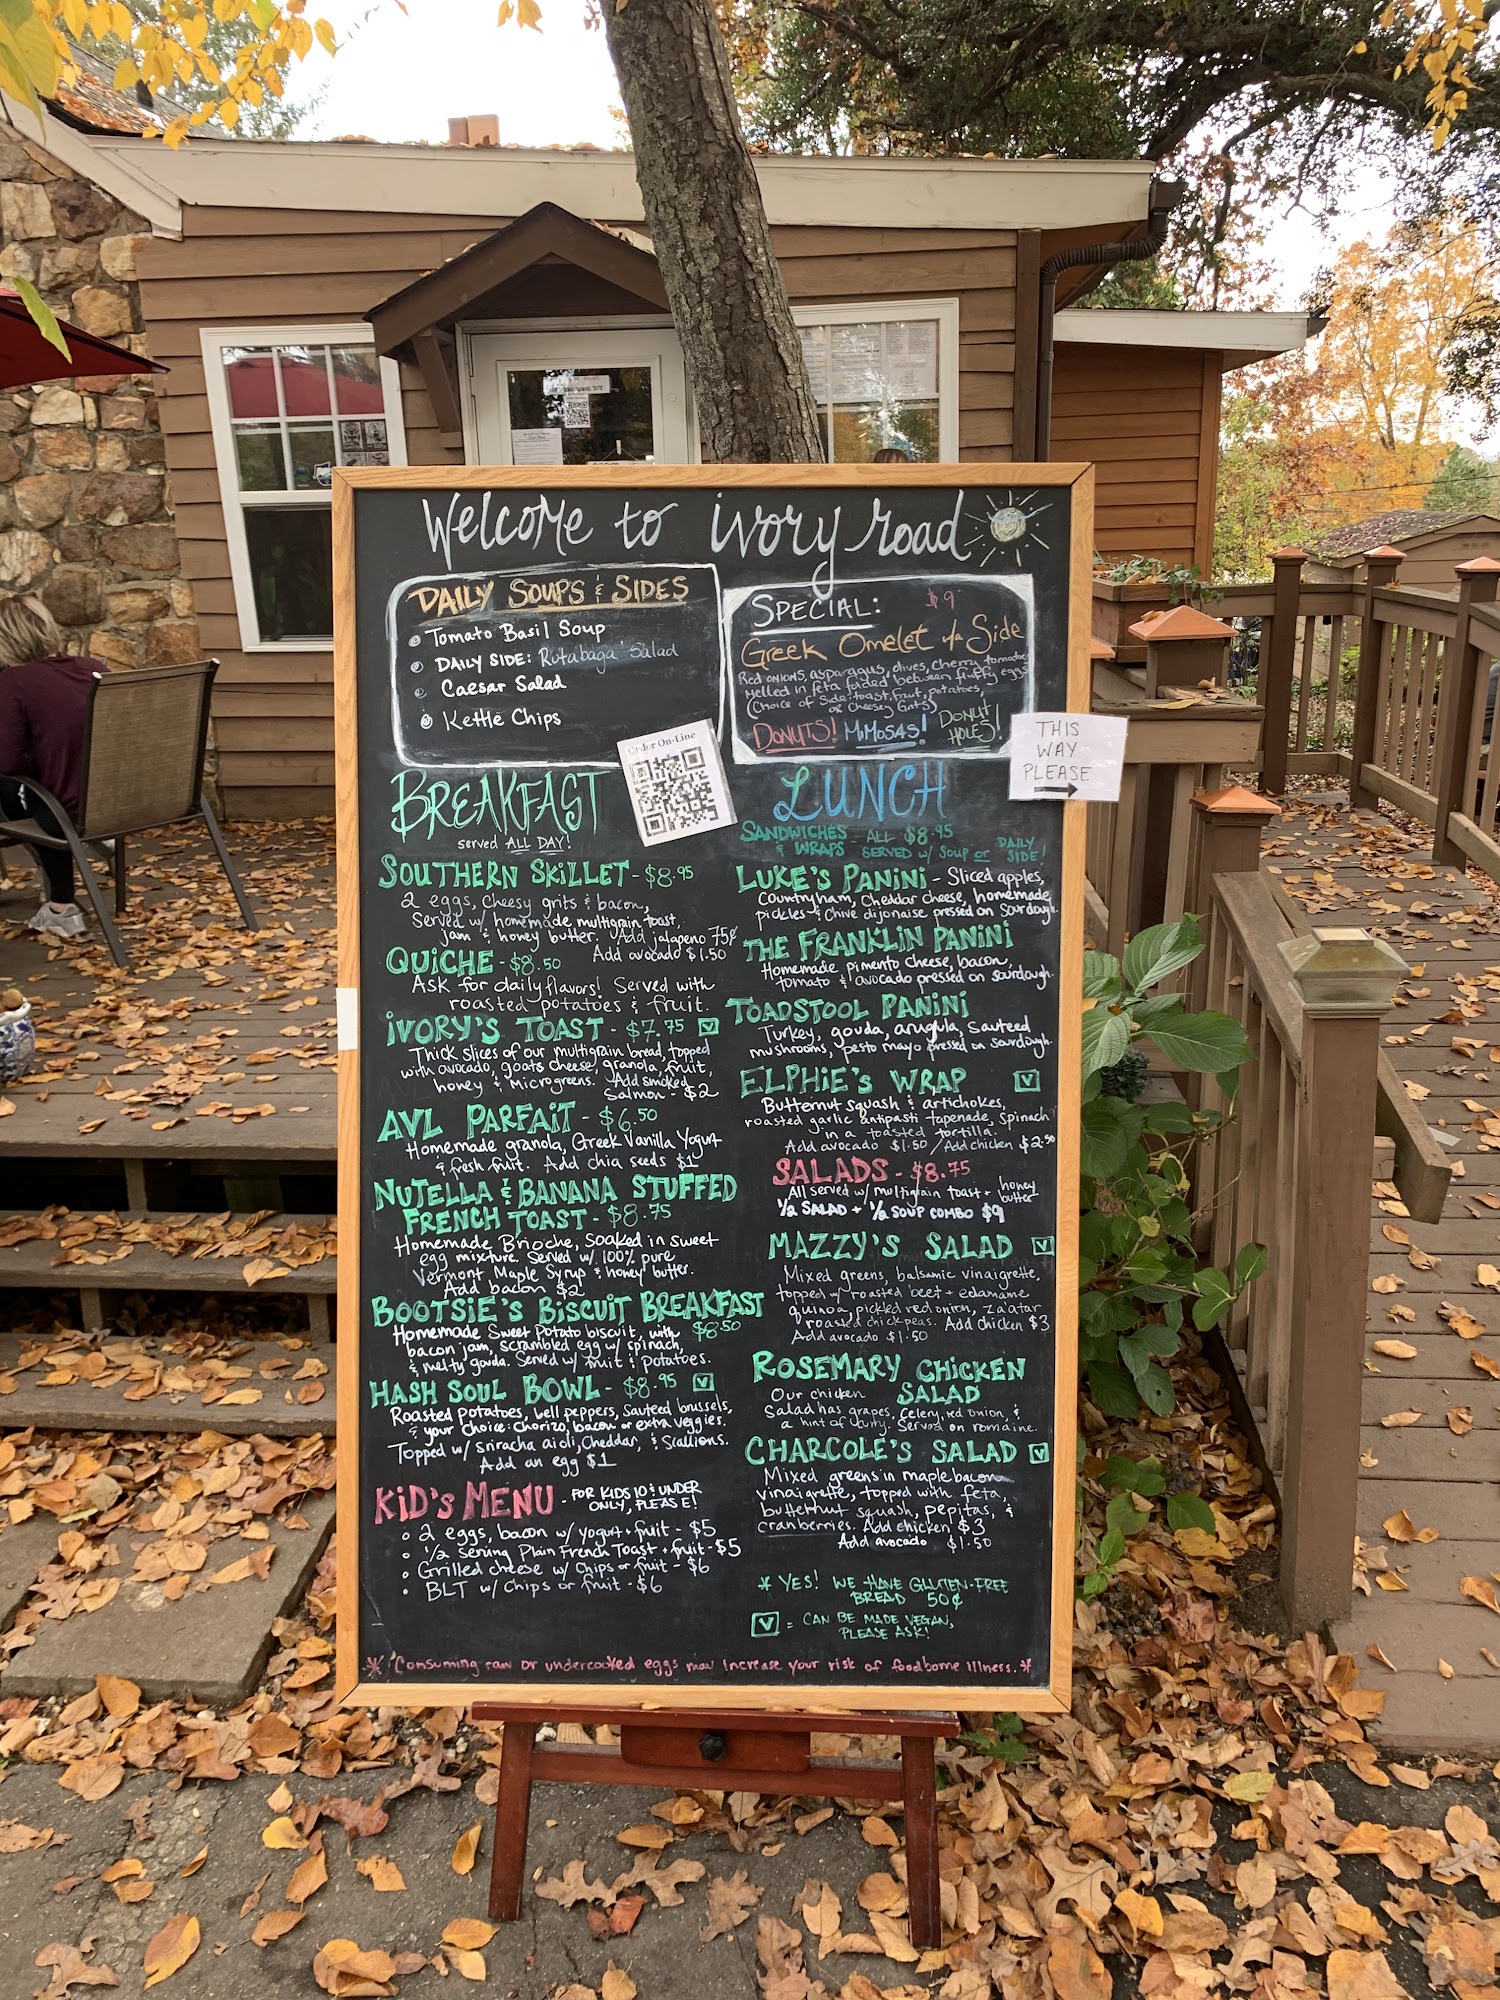 Welcome to ivory road
DAILY SOUPS & SIDES
Tomato Basil Soup
DAILY SIDE: Rutabaga Salad
Caesar Salad
Kettle Chips
SPECIAL: $9
Greek Omelet w/a Side
Red onions, asparagus, olives, cherry tomatoes
Melled in feta folded between fluffy eggs
(Choice of Side: toast, fruit, potatoes,
or Cheesey Grits)
DONUTS! MIMOSAS! DONUT HOLES!
Order On-Line
THIS
WAY
PLEASE
BREAKFAST
served ALL DAY!
SOUTHERN SKILLET - $8.95
2 eggs, cheesy grits & bacon,
Served w/ homemade multigrain toast,
jam & honey butter. Add jalapeno 75¢
Add avocado $1.50
QUICHE - $8.50
Ask for daily flavors! Served with
roasted potatoes & fruit.
IVORY'S TOAST - $7.75 V
Thick slices of our multigrain bread, topped
with avocado, goats cheese, granola, fruit,
honey & microgreens. Add smoked
Salmon - $2
AVL PARFAIT - $6.50
Homemade granola, Greek Vanilla Yogurt
& fresh fruit. Add chia seeds $1
NUTELLA & BANANA STUFFED
FRENCH TOAST - $8.75
Homemade Brioche, soaked in sweet
egg mixture. Served w/ 100% pure
Vermont Maple Syrup & honey butter.
Add bacon $2
BOOTSIE'S BISCUIT BREAKFAST
Homemade Sweet Potato biscuit, with $8.50
bacon jam, scrambled egg w/ spinach,
& melty gouda. Served w/ fruit & potatoes.
HASH SOUL BOWL - $8.95 V
Roasted potatoes, bell peppers, sauteed brussels,
& your choice: chorizo, bacon or extra veggies.
Topped w/ sriracha aioli, cheddar, & scallions.
Add an egg $1
KID'S MENU - FOR KIDS 10 & UNDER
ONLY, PLEASE!
2 eggs, bacon w/ yogurt + fruit - $5
1/2 Serving Plain French Toast + fruit - $5
Grilled cheese w/ Chips or fruit - $6
BLT w/ Chips or fruit - $6
LUNCH
SANDWICHES & WRAPS - ALL $8.95
SERVED w/ Soup or DAILY SIDE!
LUKE'S PANINI - Sliced apples,
Country ham, Cheddar cheese, homemade
pickles & Chive dijonaise pressed on Sourdough.
THE FRANKLIN PANINI
Homemade pimento cheese, bacon,
tomato & avocado pressed on sourdough.
TOADSTOOL PANINI
Turkey, gouda, arugula, sauteed
mushrooms, pesto mayo pressed on sourdough.
ELPHIE'S WRAP V
Butternut squash & artichokes,
roasted garlic antipasti tapenade, spinach
in a toasted tortilla.
Add avocado $1.50 / Add chicken $2.50
SALADS - $8.75
All served w/ multigrain toast + honey butter
1/2 SALAD + 1/2 SOUP COMBO $9
MAZZY'S SALAD V
Mixed greens, balsamic vinaigrette,
topped w/ roasted beet + edamame
quinoa, pickled red onion, za'atar
roasted chickpeas. Add chicken $3
Add avocado $1.50
ROSEMARY CHICKEN
SALAD
Our chicken
Salad has grapes, celery, red onion, &
a hint of curry. Served on romaine.
CHARCOLE'S SALAD V
Mixed greens in maple bacon
vinaigrette, topped with feta,
butternut squash, pepitas, &
cranberries. Add chicken $3
Add avocado $1.50
* YES! WE HAVE GLUTEN-FREE
BREAD 50¢
V = CAN BE MADE VEGAN,
PLEASE ASK!
* Consuming raw or undercooked eggs may increase your risk of foodborne illness. *